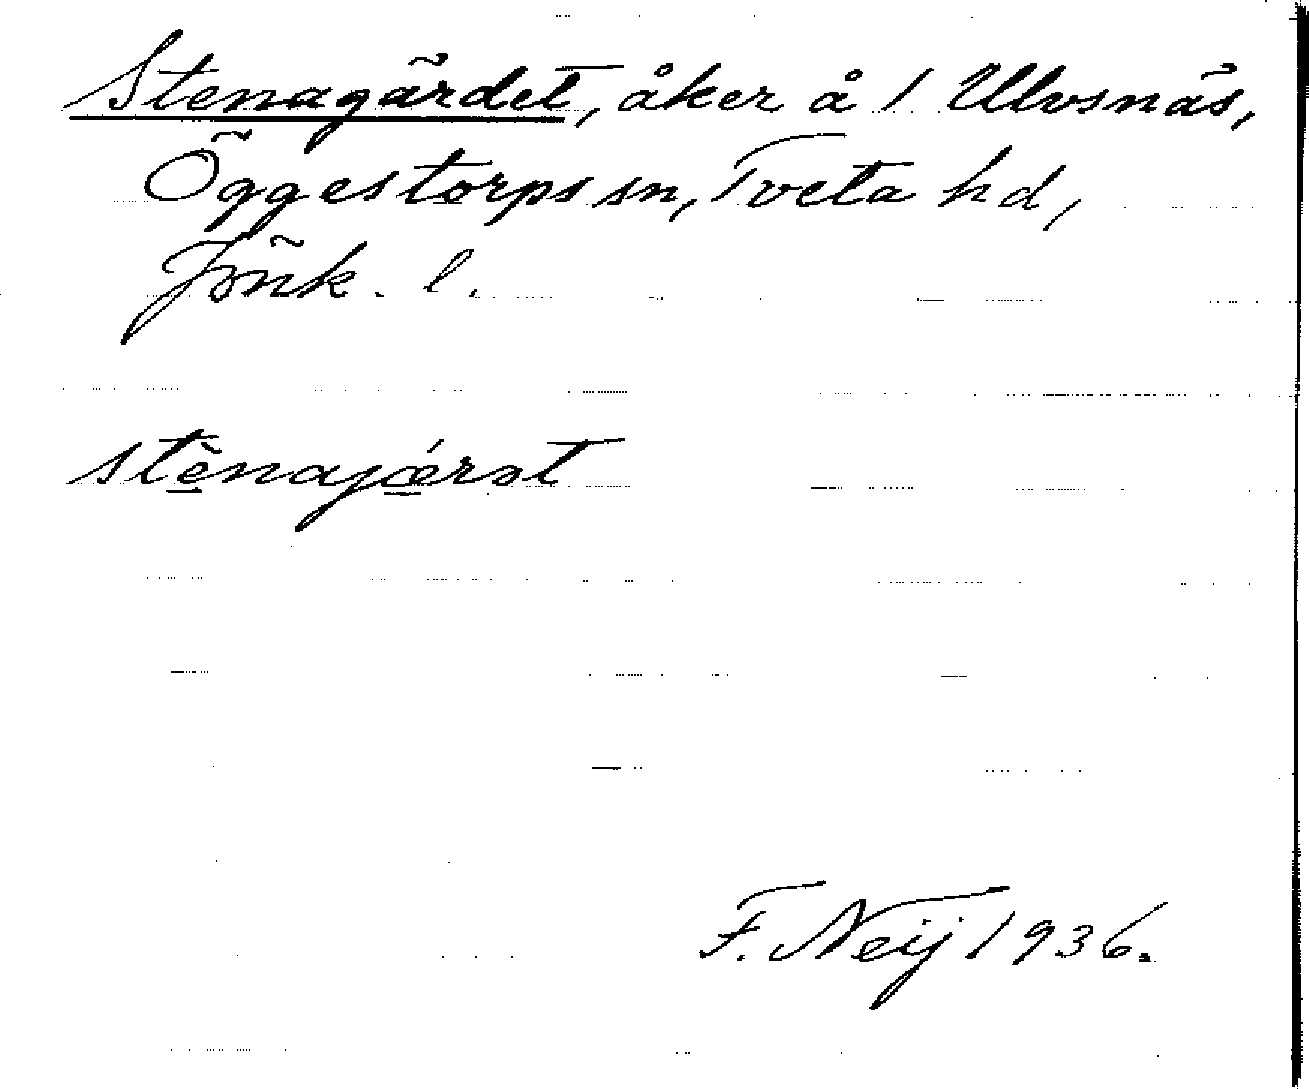 Stenagärdet, åker å 1 Ulvsnäs,
Öggestorps sn, Tveta hd,
Jönk. l.
stènajǽrət
F. Neij 1936.